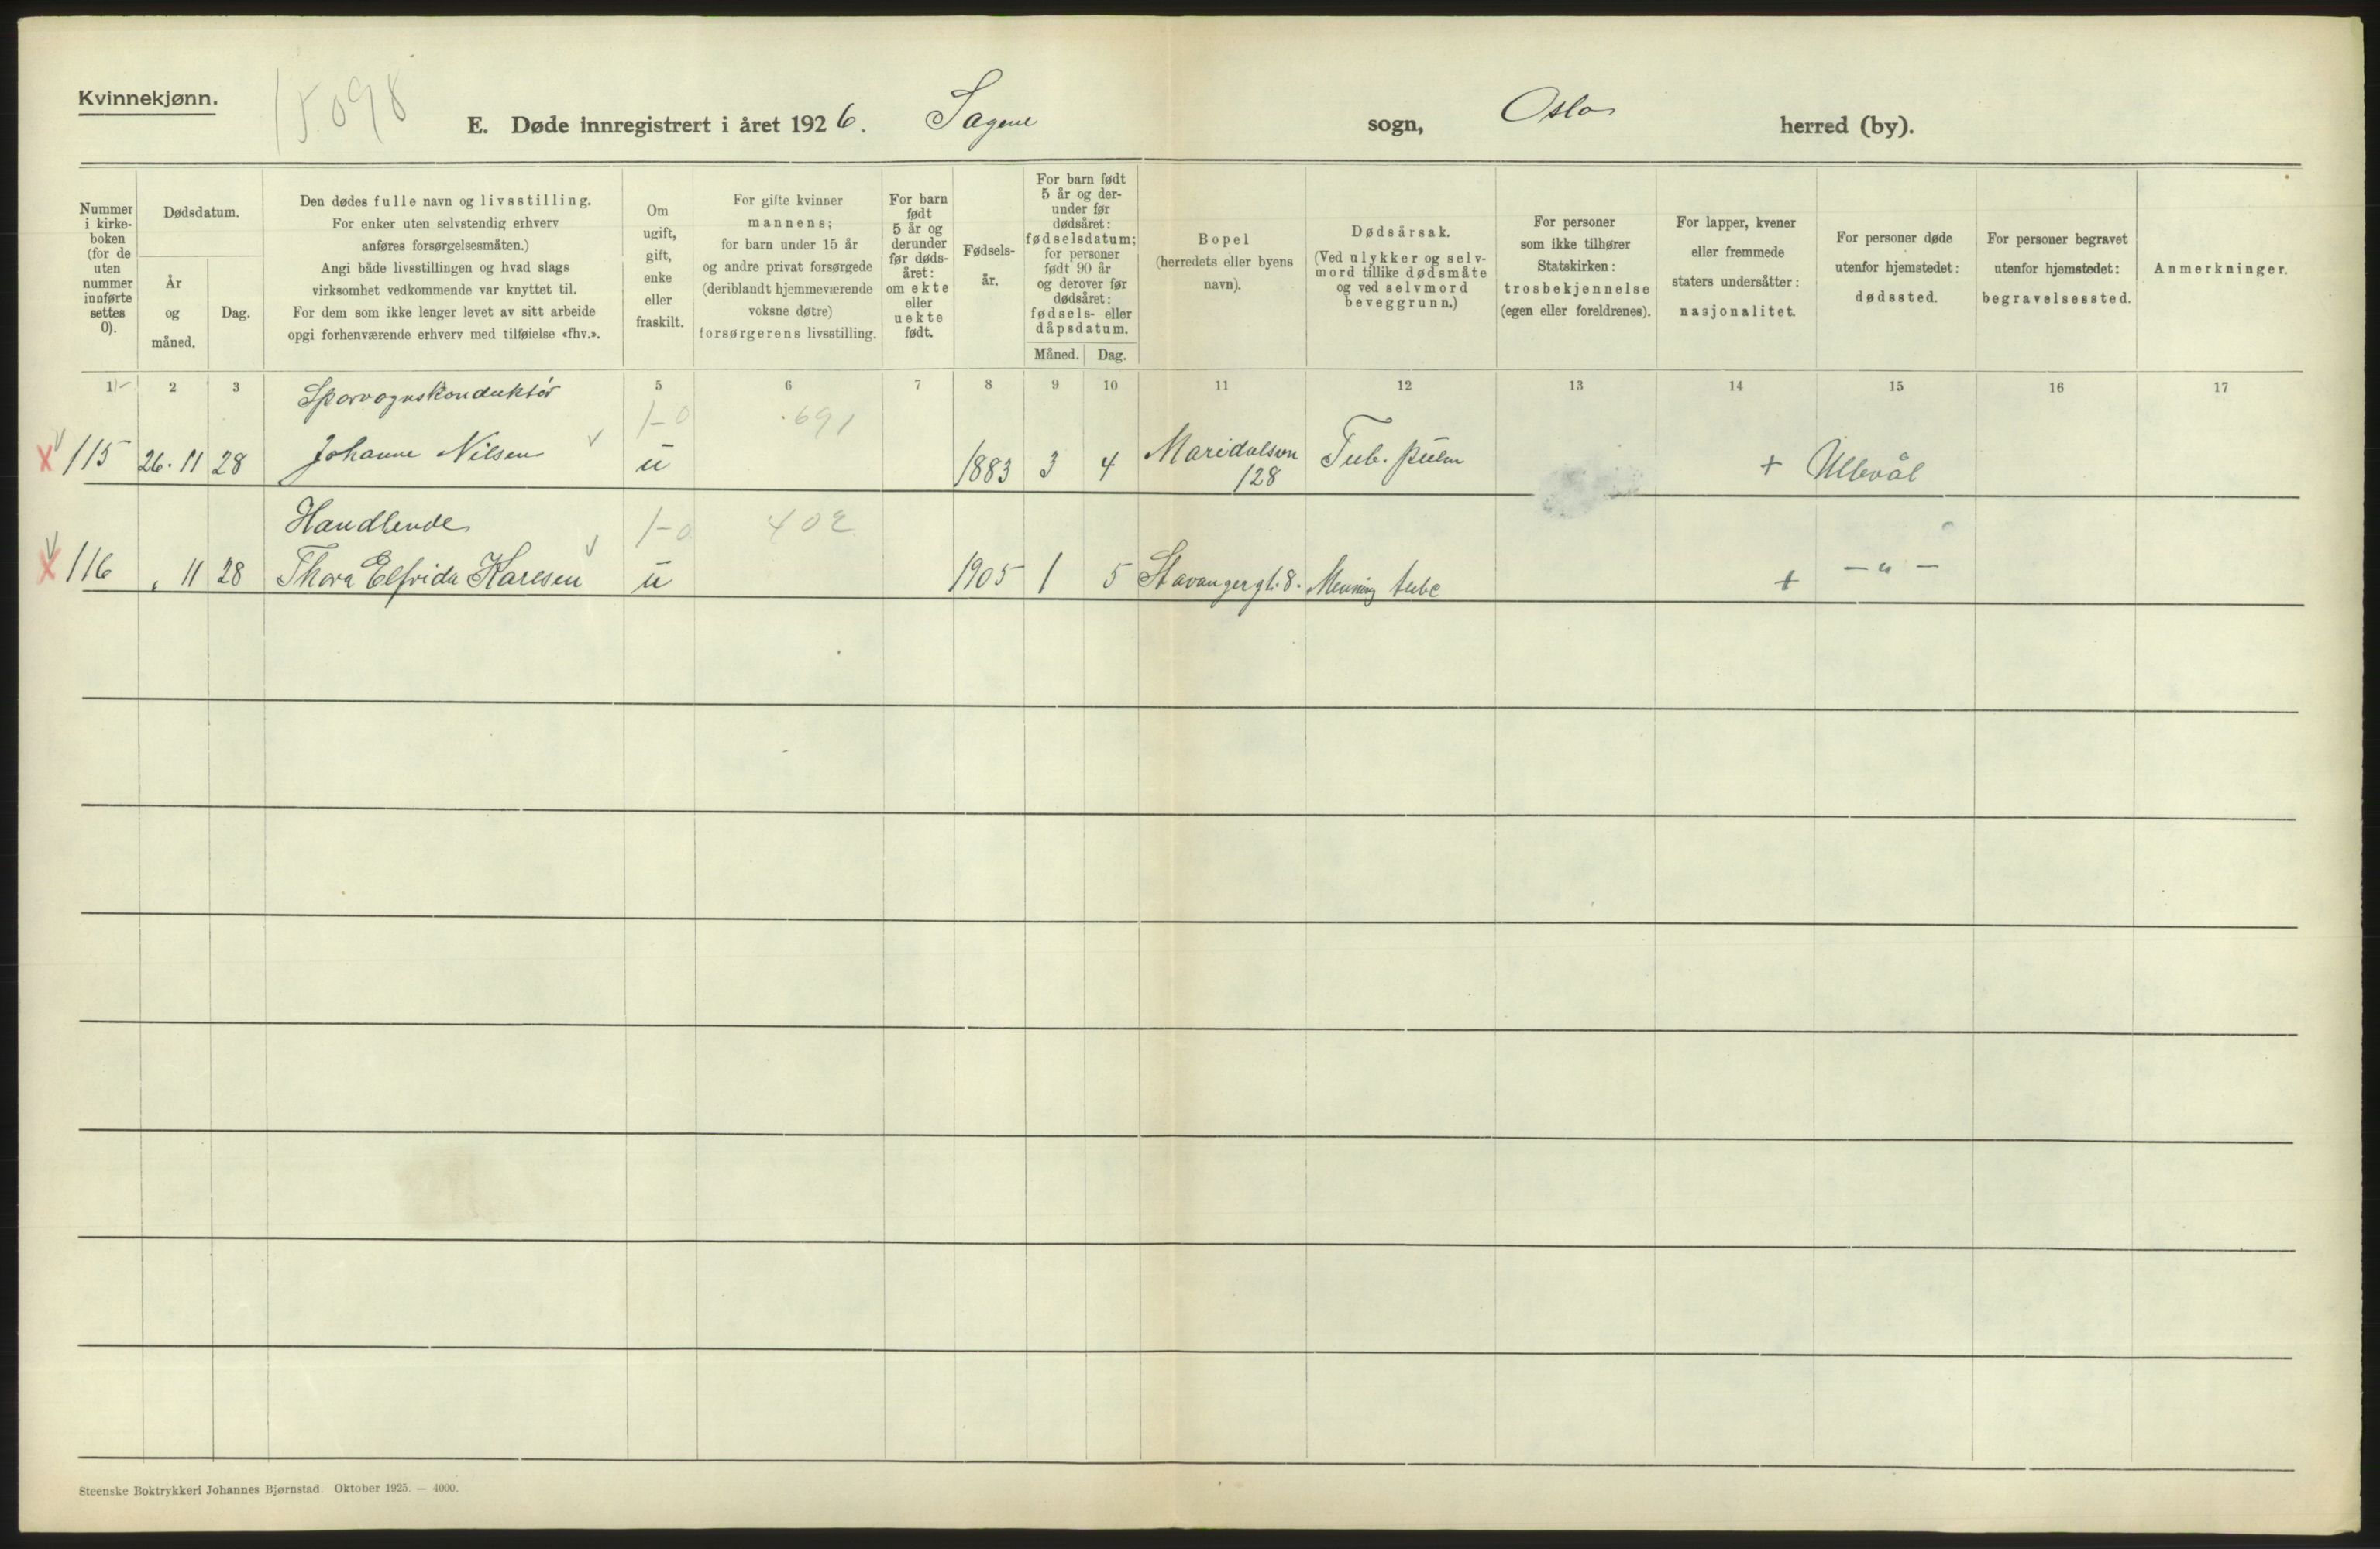 Kvinnekjønn.
15098
E. Døde innregistrert i året 1926. Sagene sogn, Oslo herred (by).
Nummer i kirke- boken (for de uten nummer innførte settes 0).
Dødsdatum.
År og måned.
Dag.
Den dødes fulle navn og livsstilling.
For enker uten selvstendig erhverv
anføres forsørgelsesmåten.)
Angi både livsstillingen og hvad slags
virksomhet vedkommende var knyttet til.
For dem som ikke lenger levet av sitt arbeide
opgi forhenværende erhverv med tilføielse «fhv.».
Om
ugift,
gift,
enke
eller
fraskilt.
For gifte kvinner
mannens;
for barn under 15 år
og andre privat forsørgede
(deriblandt hjemmeværende
voksne døtre)
forsørgerens livsstilling.
For barn
født
5 år og
derunder
før døds-
året:
om ekte
eller
uekte
født.
Fødsels-
år.
For barn født
5 år og der-
under før
dødsåret:
fødselsdatum;
for personer
født 90 år
og derover før
dødsåret:
fødsels- eller
dåpsdatum.
Måned. Dag.
Bopel
(herredets eller byens
navn).
Dødsårsak.
(Ved ulykker og selv-
mord tillike dødsmåte
og ved selvmord
beveggrunn.)
For personer
som ikke tilhører
Statskirken:
trosbekjennelse
(egen eller foreldrenes).
For lapper, kvener
eller fremmede
staters undersåtter:
nasjonalitet.
For personer døde
utenfor hjemstedet:
dødssted.
For personer begravet
utenfor hjemstedet:
begravelsessted.
Anmerkninger.
1 2 3 5 6 7 8 9 10 11 12 13 14 15 16 17
Sporvognskonduktør 1-0 691
X 115 26. 11 28 Johanne Nilsen u 1883 3 4 Maridalsvn 128 Tub. pulm + Ullevål
Handlende 1-0 402
X 116 " 11 28 Thora Elfrida Karlsen u 1905 1 5 Stavangergt. 8. Mening tube + - " -
Steenske Boktrykkeri Johannes Bjørnstad. Oktober 1925. — 4000.